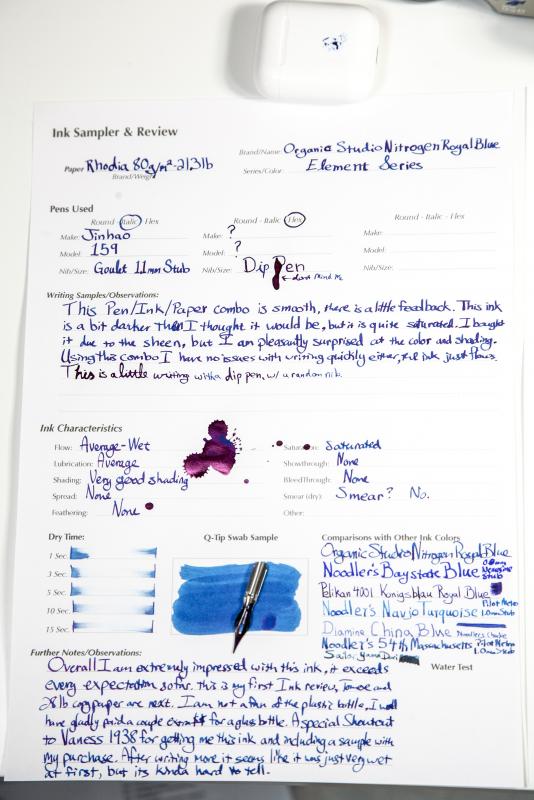 Ink Sampler & Review
Brand/Name: Organic Studio Nitrogen Royal Blue
Paper Rhodia 80g/m²-21.3lb
Brand/Weight
Series/Color: Element Series
Pens Used
Round - Italic - Flex
Round - Italic - Flex
Round - Italic - Flex
Make: Jinhao
Make: ?
Make:
Model: 159
Model: ?
Model:
Nib/Size: Goulet 1.1mm Stub
Nib/Size: Dip Pen
Nib/Size:
← dont mind me
Writing Samples/Observations:
This Pen/Ink/Paper combo is smooth, there is a little feedback. This ink
is a bit darker than I thought it would be, but it is quite saturated. I bought
it due to the sheen, but I am pleasantly surprised at the color and shading.
Using this combo I have no issues with writing quickly either, the ink just flows.
This is a little writing with a dip pen, w/ a random nib.
Ink Characteristics
Flow: Average-Wet
Saturation: Saturated
Lubrication: Average
Showthrough: None
Shading: Very good shading
BleedThrough: None
Spread: None
Smear (dry): Smear? No.
Feathering: None
Other:
Dry Time:
Q-Tip Swab Sample
Comparisons with Other Ink Colors
1 Sec.
3 Sec.
5 Sec.
10 Sec.
15 Sec.
Organic Studio Nitrogen Royal Blue
Noodler's Baystate Blue
Stub
Pelikan 4001 Königsblau Royal Blue
Noodler's Navajo Turquoise Pilot Metro 1.0mm Stub
Diamine China Blue Noodler's
Noodler's 54th Massachusetts Pilot Metro 1.0mm Stub
Sailor Yama Dori
Water Test
Further Notes/Observations:
Overall I am extremely impressed with this ink, it exceeds
every expectation so far. This is my first Ink review, Tomoe and
28lb copy paper are next. I am not a fan of the plastic bottle, I would
have gladly paid a couple extra $ for a glass bottle. A special Shoutout
to Vaness 1938 for getting me this ink and including a sample with
my purchase. After writing more it seems like it was just very wet
at first, but its kinda hard to tell.